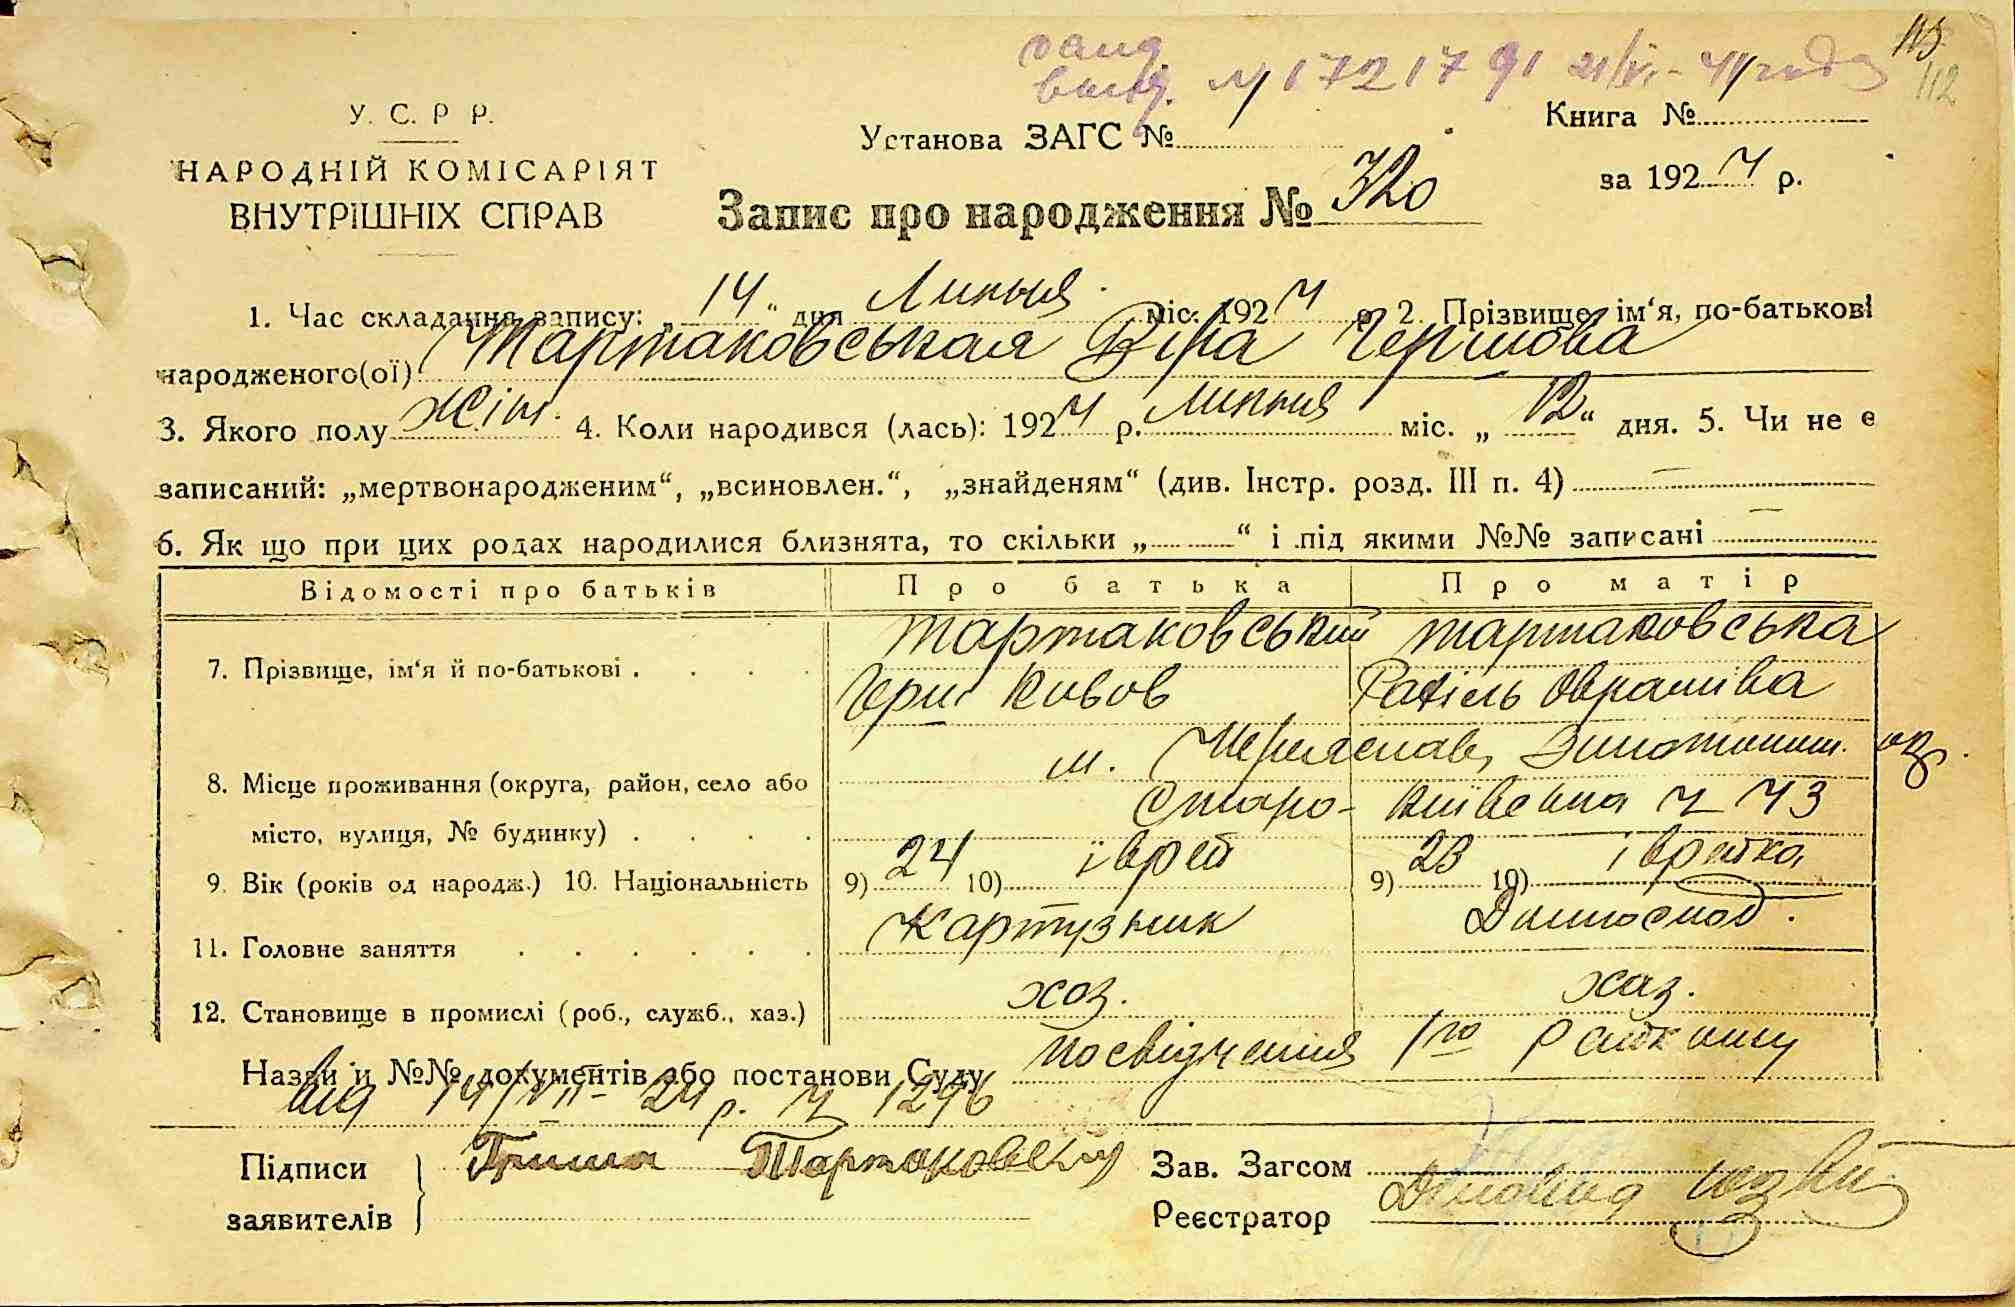 115
112
выд. № 172179
У. С. Р Р.
НАРОДНІЙ КОМІСАРІЯТ
ВНУТРІШНІХ СПРАВ
Установа ЗАГС №
Книга №
за 1924 р.
Запис про народження № 320
1. Час складання запису: „14“ дня Липня міс. 1924 р. 2. Прізвище, ім‘я, по-батькові
народженого(ої) Тартаковськая Віра Гершова
3. Якого полу жін. 4. Коли народився (лась): 1924 р. липня міс. „12“ дня. 5. Чи не є
записаний: „мертвонародженим“, „всиновлен.“, „знайденям“ (див. Інстр. розд. III п. 4) —
6. Як що при цих родах народилися близнята, то скільки „ “ і під якими №№ записані —
Відомості про батьків Про батька Про матір
7. Прізвище, ім‘я й по-батькові Тартаковський Тартаковська
Герш Рахіль
8. Місце проживання (округа, район, село або м. Переяслав, Золотоніш. окр.
місто, вулиця, № будинку) Старо-Київська ч 43
9. Вік (років од народж.) 10. Національність 9) 24 10) їврей 9) 23 10) івритка
11. Головне заняття Картузник Домоспод.
12. Становище в промислі (роб., служб., хаз.) хоз. хаз.
Назви и №№ документів або постанови Суду посвідчення 1го Райкому
від 14/VII-24 р. ч 1296
Підписи заявителів Гриша Тартаковский
Зав. Загсом
Реєстратор